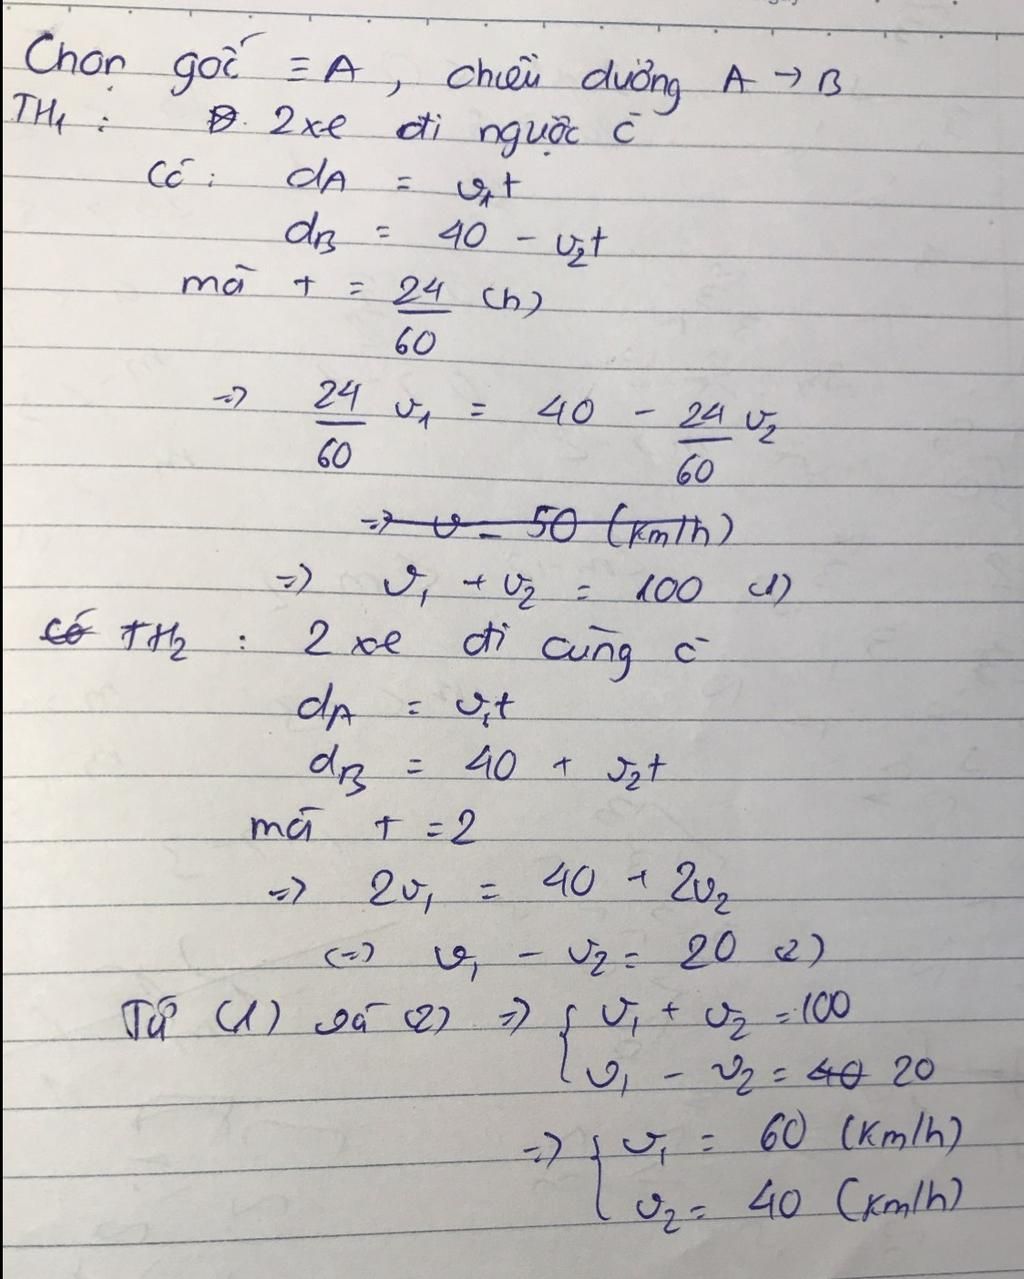 Chọn gốc ≡ A, chiều dương A → B
TH₁ : 2 xe đi ngược c̄
Có : dA = v₁t
dB = 40 - v₂t
mà t = 24/60 (h)
=> 24/60 v₁ = 40 - 24/60 v₂
=> v = 50 (km/h)
=> v₁ + v₂ = 100 (1)
có TH₂ : 2 xe đi cùng c̄
dA = v₁t
dB = 40 + v₂t
mà t = 2
=> 2v₁ = 40 + 2v₂
(=) v₁ - v₂ = 20 (2)
Từ (1) và (2) => { v₁ + v₂ = 100
v₁ - v₂ = 40 20
=> { v₁ = 60 (km/h)
v₂ = 40 (km/h)